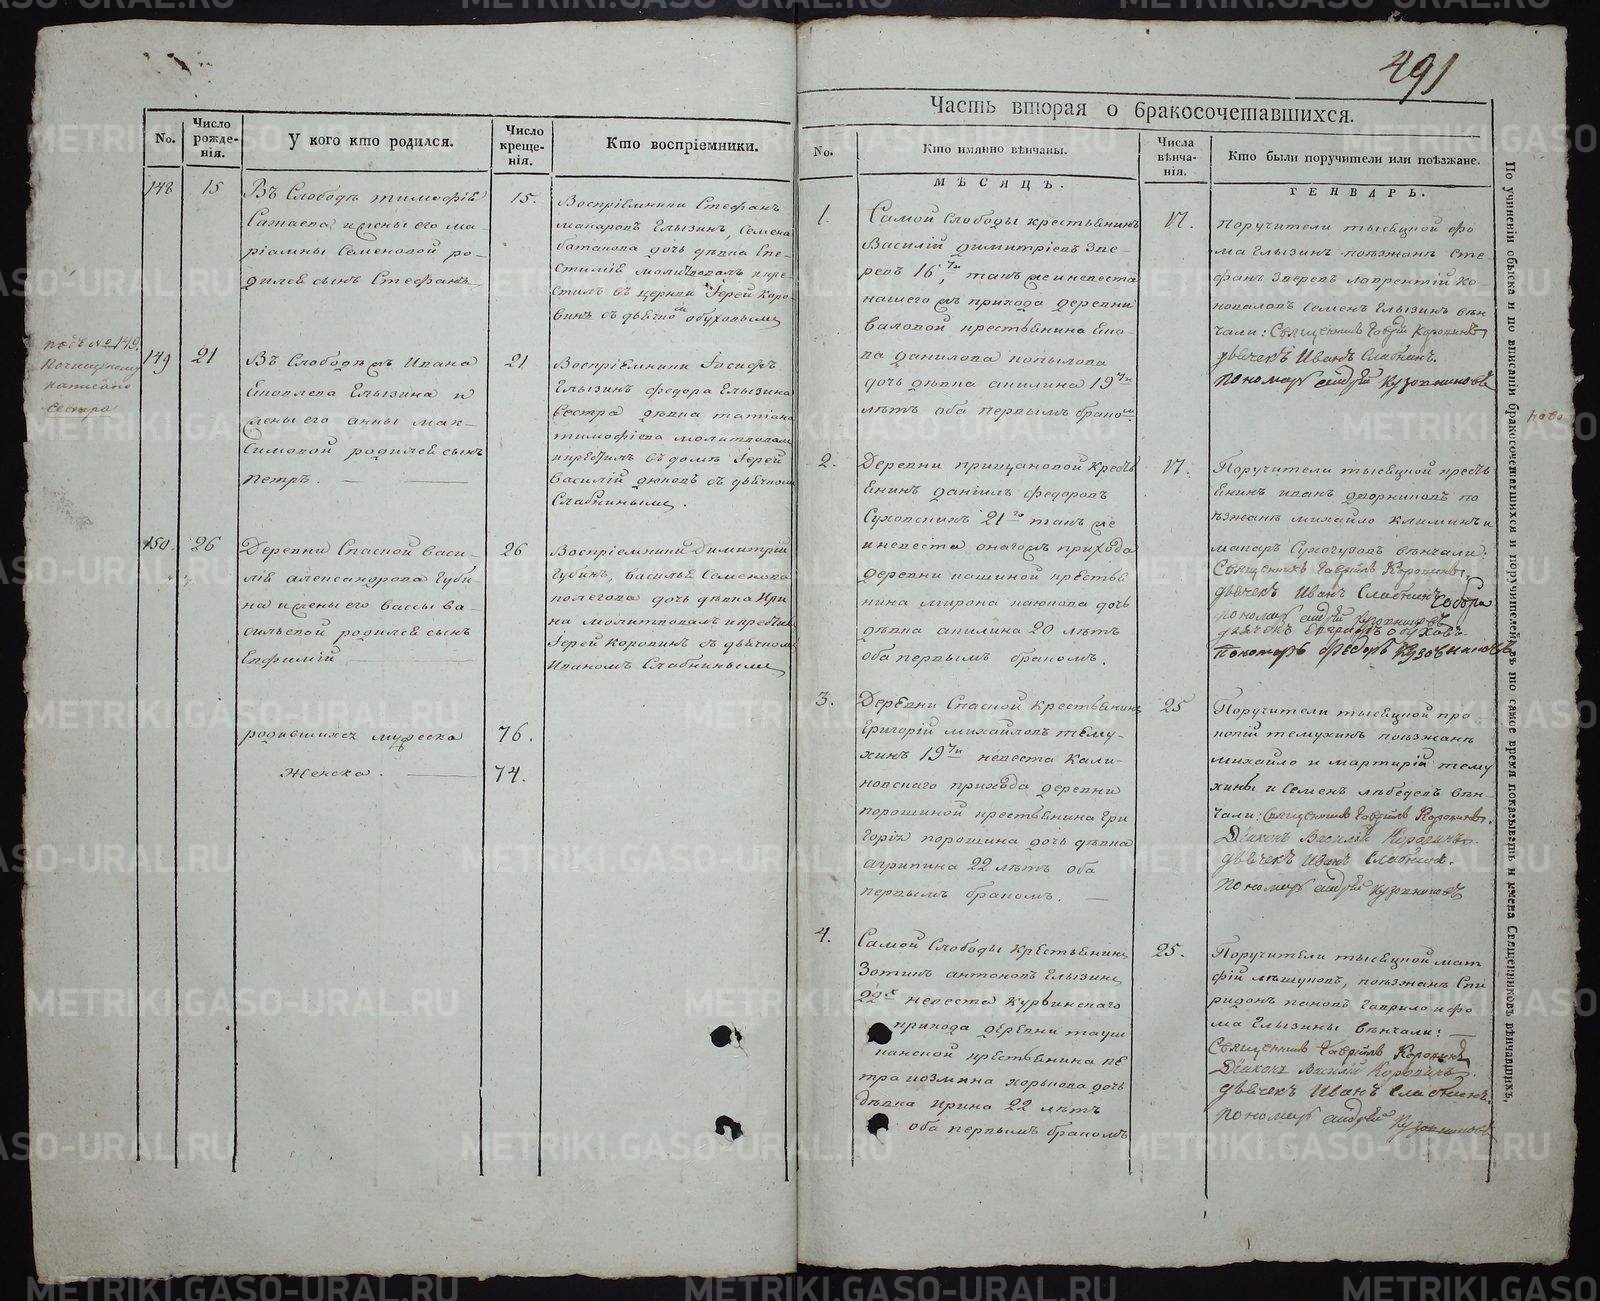 491
No.
Число рожденія.
У кого кто родился.
Число крещенія.
Кто воспріемники.
148
15
Въ Слободѣ тимофѣя
Сатаева и жены его ма-
ріамны Семеновой ро-
дился сынъ Стефанъ
15.
Воспріемники Стефанъ
макаровъ Елызинъ, Семена
дочь дѣвка
молитвовалъ и кре-
стилъ въ церкви Іерей Коро-
винъ съ дьячкомъ Обуховымъ
подъ № 149.
сестра
149
21
Въ Слободѣ Ивана
Яковлева Елызина и
жены его анны мак-
симовой родился сынъ
петръ.
21
Воспріемники Іосифъ
Елызинъ федора Елызина
Сестра дѣвка татіана
тимофѣева молитвовалъ
и крестилъ въ домѣ Іерей
Василій съ дьячкомъ
Слабнинымъ.
150.
26
Деревни Спаской васи-
лія александрова Губи-
на и жены его вассы ва-
сильевой родился сынъ
Евфимій
26
Воспріемники Димитрій
Губинъ, василья Семенова
полегова дочь дѣвка Ири
на молитвовалъ и крестилъ
Іерей Коровинъ съ дьячкомъ
Иваномъ Слабнинымъ
родившихся мужеска
76.
Женска.
74.
Часть вторая о бракосочетавшихся.
No.
Кто имянно вѣнчаны.
Числа вѣнчанія.
Кто были поручители или поѣзжане.
МѢСЯЦЪ.
ГЕНВАРЬ.
1.
Самой слободы крестьянинъ
Василій Димитріевъ Зве-
ревъ 16ти, также и невеста
нашего жъ прихода деревни
валовой крестьянина Яко-
ва данилова копылова
дочь дѣвка акилина 19ти
лѣтъ оба первымъ бракомъ
17.
поручители тысяцкой фо
ма Елызинъ поѣзжанъ сте
фанъ Зверевъ лаврентій ко
новаловъ семенъ Елызинъ вѣн
чали: Священникъ Гавріилъ Коровинъ
дьячекъ Иванъ Слабнинъ.
пономарь андрей Кузовниковъ
2.
Деревни прищановой крестья
янинъ даніилъ федоровъ
21го также
и невеста онагожъ прихода
деревни кашиной крестья
нина мирона каюкова дочь
дѣвка акилина 20 лѣтъ
оба первымъ бракомъ.
17.
Поручители тысяцкой кресть
янинъ иванъ дворниковъ по
ѣзжанъ михайло климинъ и
макаръ Сухогузовъ вѣнчали:
Священникъ Гавріилъ Коровинъ,
дьячекъ Иванъ Слабнинъ
пономарь андрей Кузовниковъ
дьячекъ Обуховъ
Пономарь федоръ Кузовниковъ
3.
Деревни Спаской крестьянинъ
григорій михайловъ тему-
хинъ 19ти невеста Кали-
новскаго прихода деревни
порошиной крестьянина Гри
горія порошина дочь дѣвка
агрипина 22 лѣтъ оба
первымъ бракомъ.
25
Поручители тысяцкой про
копій темухинъ поѣзжанъ
михайло и мартирій тему
хины и семенъ лѣбедевъ вѣн-
чали: Священникъ Гавріилъ Коровинъ.
Діаконъ Василій Коровинъ
дьячекъ Иванъ Слабнинъ.
пономарь андрей Кузовниковъ
4.
Самой Слободы крестьянинъ
Зотикъ антоновъ Елызинъ
22х невеста Курьинскаго
прихода деревни тауш
канской крестьянина пе
тра козмина хорькова дочь
дѣвка ирина 22 лѣтъ
оба первымъ бракомъ
25.
Поручители тысяцкой мат
фій поѣзжанъ Спи
ридонъ пановъ гаврило и фо
ма Елызины вѣнчали:
Священникъ Гавріилъ Коровинъ
Діаконъ Василій Коровинъ.
дьячекъ Иванъ Слабнинъ.
пономарь андрей Кузовниковъ
По учиненіи обыска и по вписаніи бракосочетавшихся и поручителей, въ то самое время показывать и имена Священниковъ вѣнчавшихъ.
METRIKI.GASO-URAL.RU